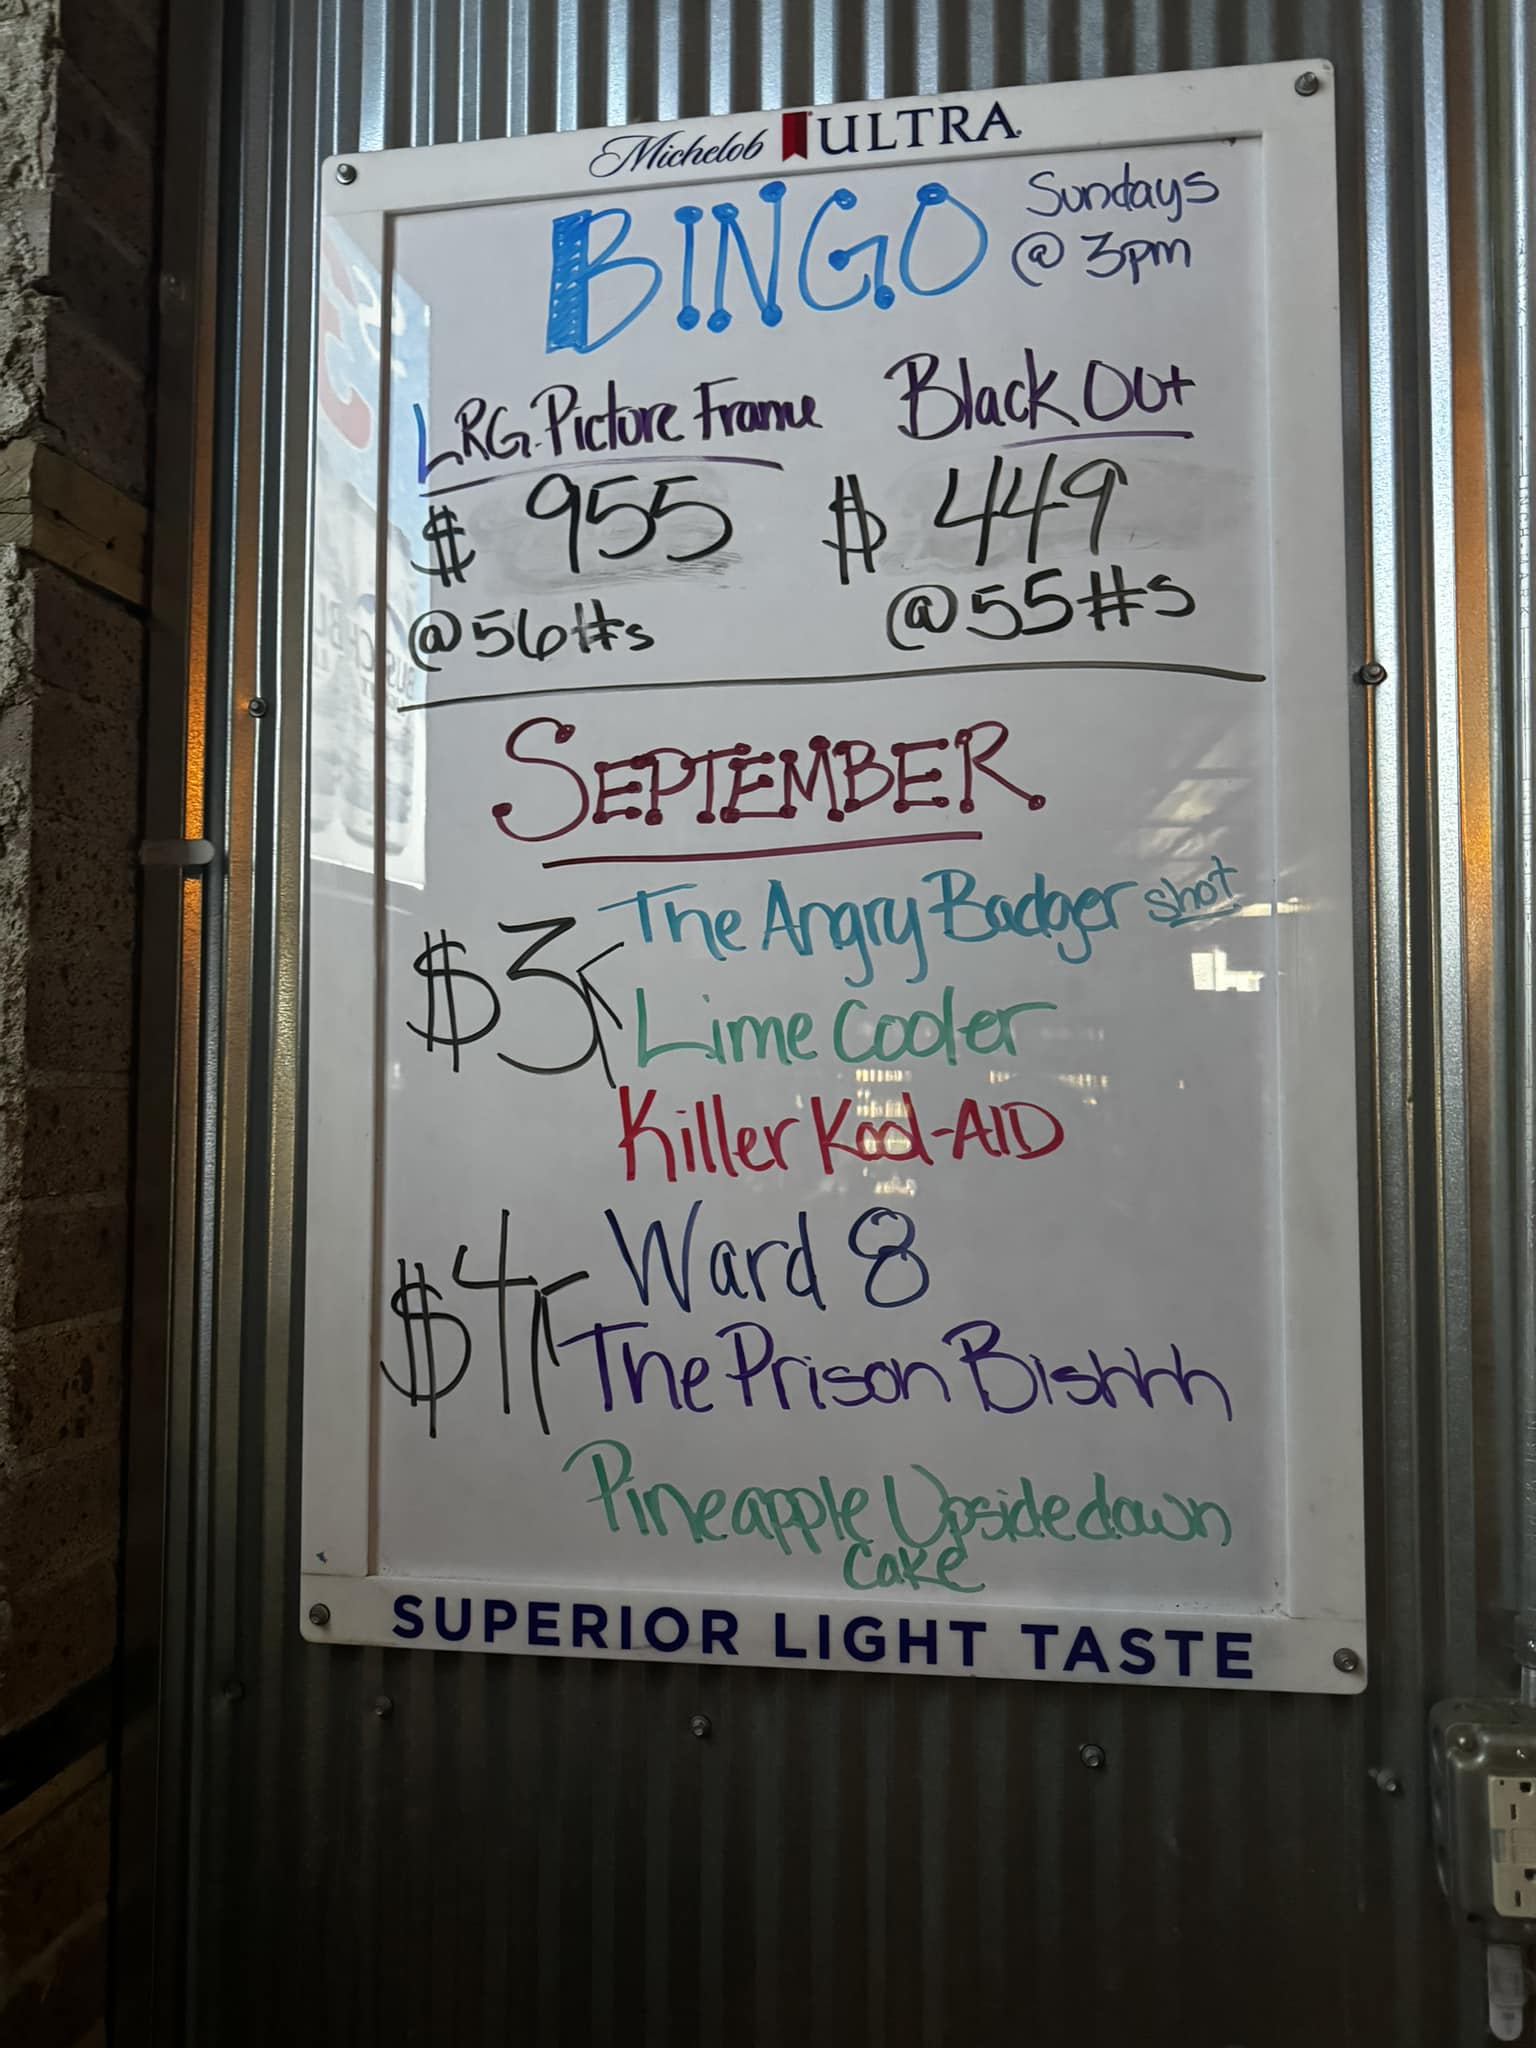 Michelob ULTRA
BINGO Sundays
@ 3pm
LRG. Picture Frame
$ 955
@56#s
Black Out
$ 449
@55#s
SEPTEMBER
$3
The Angry Badger shot
Lime Cooler
Killer Kool-AID
$4
Ward 8
The Prison Bishhh
Pineapple Upsidedown
Cake
SUPERIOR LIGHT TASTE